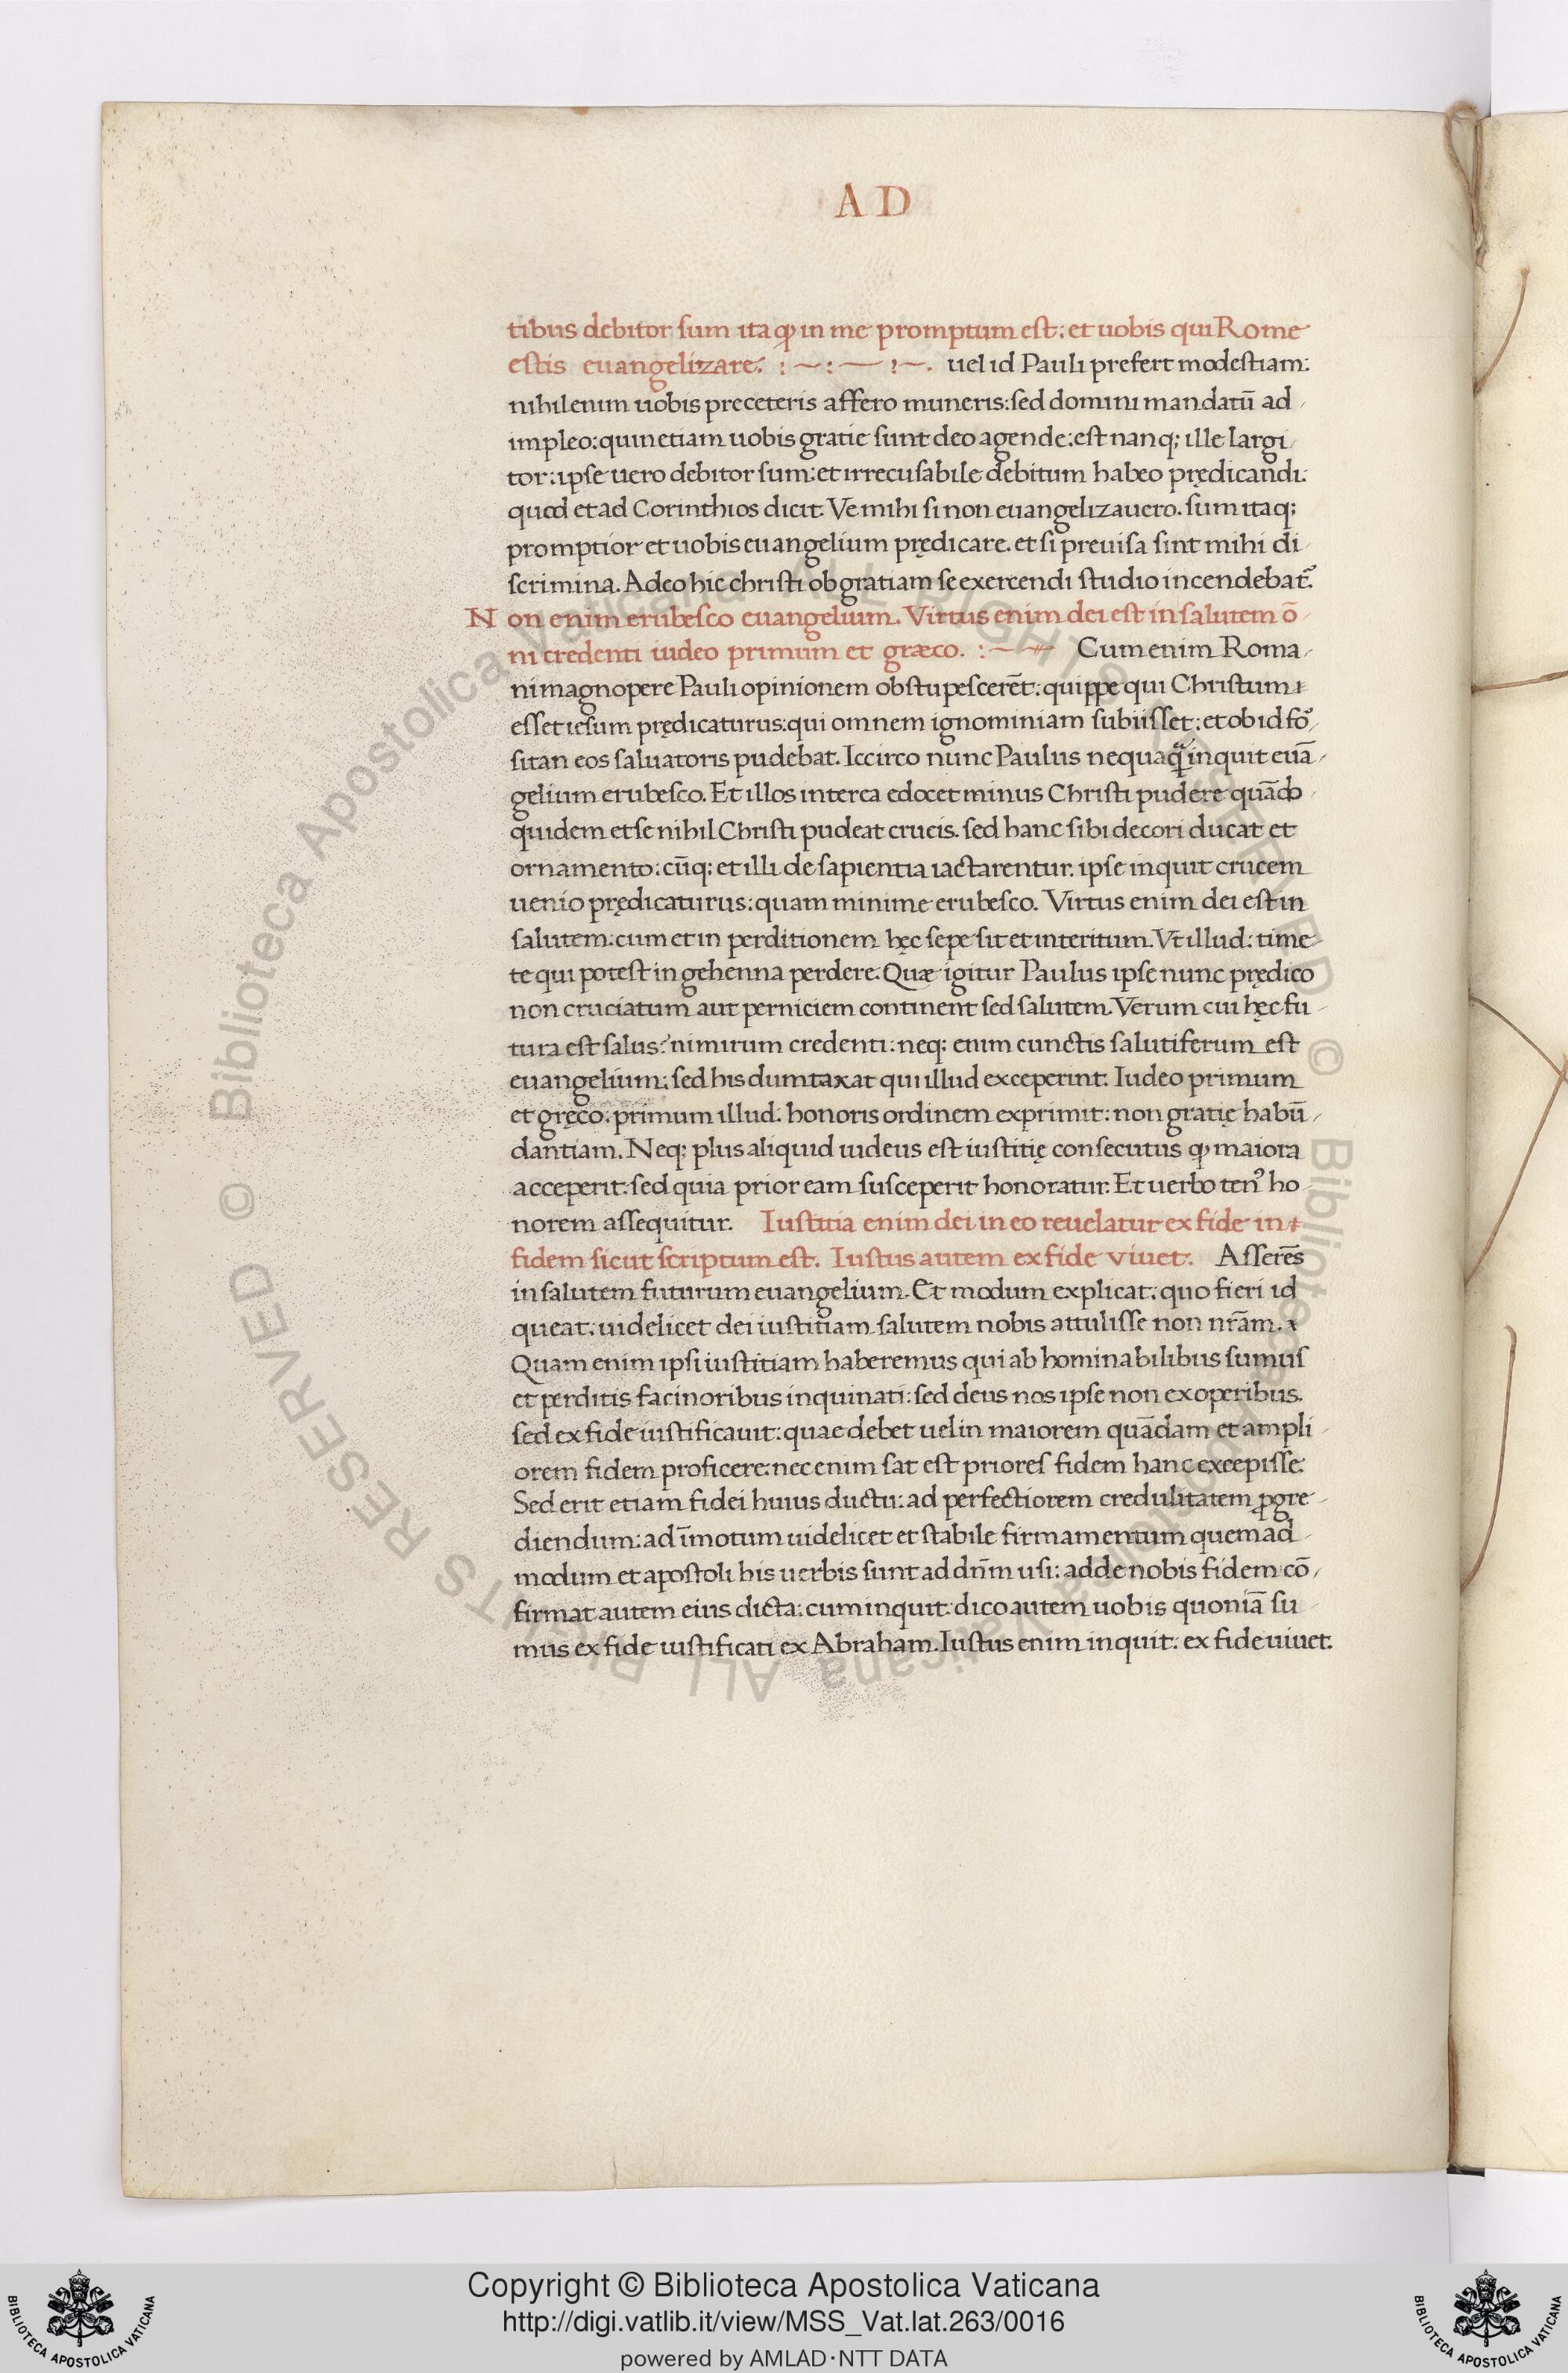 AD
tibus debitor sum ita ꝙ in me promptum est: et uobis qui Rome
estis euangelizare. : ~ : — : ~ . uel id Pauli prefert modestiam:
nihil enim uobis pre ceteris affero muneris: sed domini mandatū ad
impleo: quin etiam uobis gratie sunt deo agende: est nanq; ille largi
tor: ipse uero debitor sum: et irrecusabile debitum habeo prędicandi.
quod et ad Corinthios dicit. Ve mihi si non euangelizauero. sum itaq;
promptior et uobis euangelium prędicare. et si preuisa sint mihi di
scrimina. Adeo hic christi ob gratiam se exercendi studio incendebat᷑.
Non enim erubesco euangelium. Virtus enim dei est in salutem ō
ni credenti iudeo primum et græco. : ~ Cum enim Roma
ni magnopere Pauli opinionem obstupescerēt: quippe qui Christum
esset iesum prędicaturus: qui omnem ignominiam subiisset: et ob id fo᷑
sitan eos saluatoris pudebat. Iccirco nunc Paulus nequaꝗ̄ inquit euā
gelium erubesco. Et illos interea edocet minus Christi pudere quādo
quidem et se nihil Christi pudeat crucis. sed hanc sibi decori ducat et
ornamento: cūq; et illi de sapientia iactarentur. ipse inquit crucem
uenio prędicaturus: quam minime erubesco. Virtus enim dei est in
salutem: cum et in perditionem hęc sepe sit et interitum. Vt illud: time
te qui potest in gehenna perdere. Quæ igitur Paulus ipse nunc prędico
non cruciatum aut perniciem continent sed salutem. Verum cui hęc fu
tura est salus? nimirum credenti: neq; enim cunctis salutiferum est
euangelium: sed his dumtaxat qui illud exceperint. Iudeo primum
et gręco. primum illud: honoris ordinem exprimit: non gratię habū
dantiam. Neq; plus aliquid iudeus est iustitię consecutus ꝙ maiora
acceperit: sed quia prior eam susceperit honoratur. Et uerbo tenꝰ ho
norem assequitur. Iustitia enim dei in eo reuelatur ex fide in
fidem sicut scriptum est. Iustus autem ex fide viuet. Asserēs
in salutem futurum euangelium. Et modum explicat: quo fieri id
queat: uidelicet dei iustitiam salutem nobis attulisse non nr̄am.
Quam enim ipsi iustitiam haberemus qui ab hominabilibus sumus
et perditis facinoribus inquinati: sed deus nos ipse non ex operibus.
sed ex fide iustificauit: quae debet uel in maiorem quādam et ampli
orem fidem proficere: nec enim sat est priores fidem hanc excepisse.
Sed erit etiam fidei huius ductu: ad perfectiorem credulitatem ꝓgre
diendum: ad īmotum uidelicet et stabile firmamentum quemad
modum et apostoli his uerbis sunt ad dn̄m usi: adde nobis fidem cō
firmat autem eius dicta: cum inquit: dico autem uobis quoniā su
mus ex fide iustificati ex Abraham. Iustus enim inquit: ex fide uiuet.
© Biblioteca Apostolica Vaticana ALL RIGHTS RESERVED
© Biblioteca Apostolica Vaticana ALL RIGHTS RESERVED
Copyright © Biblioteca Apostolica Vaticana
http://digi.vatlib.it/view/MSS_Vat.lat.263/0016
powered by AMLAD·NTT DATA
BIBLIOTECA APOSTOLICA VATICANA
BIBLIOTECA APOSTOLICA VATICANA